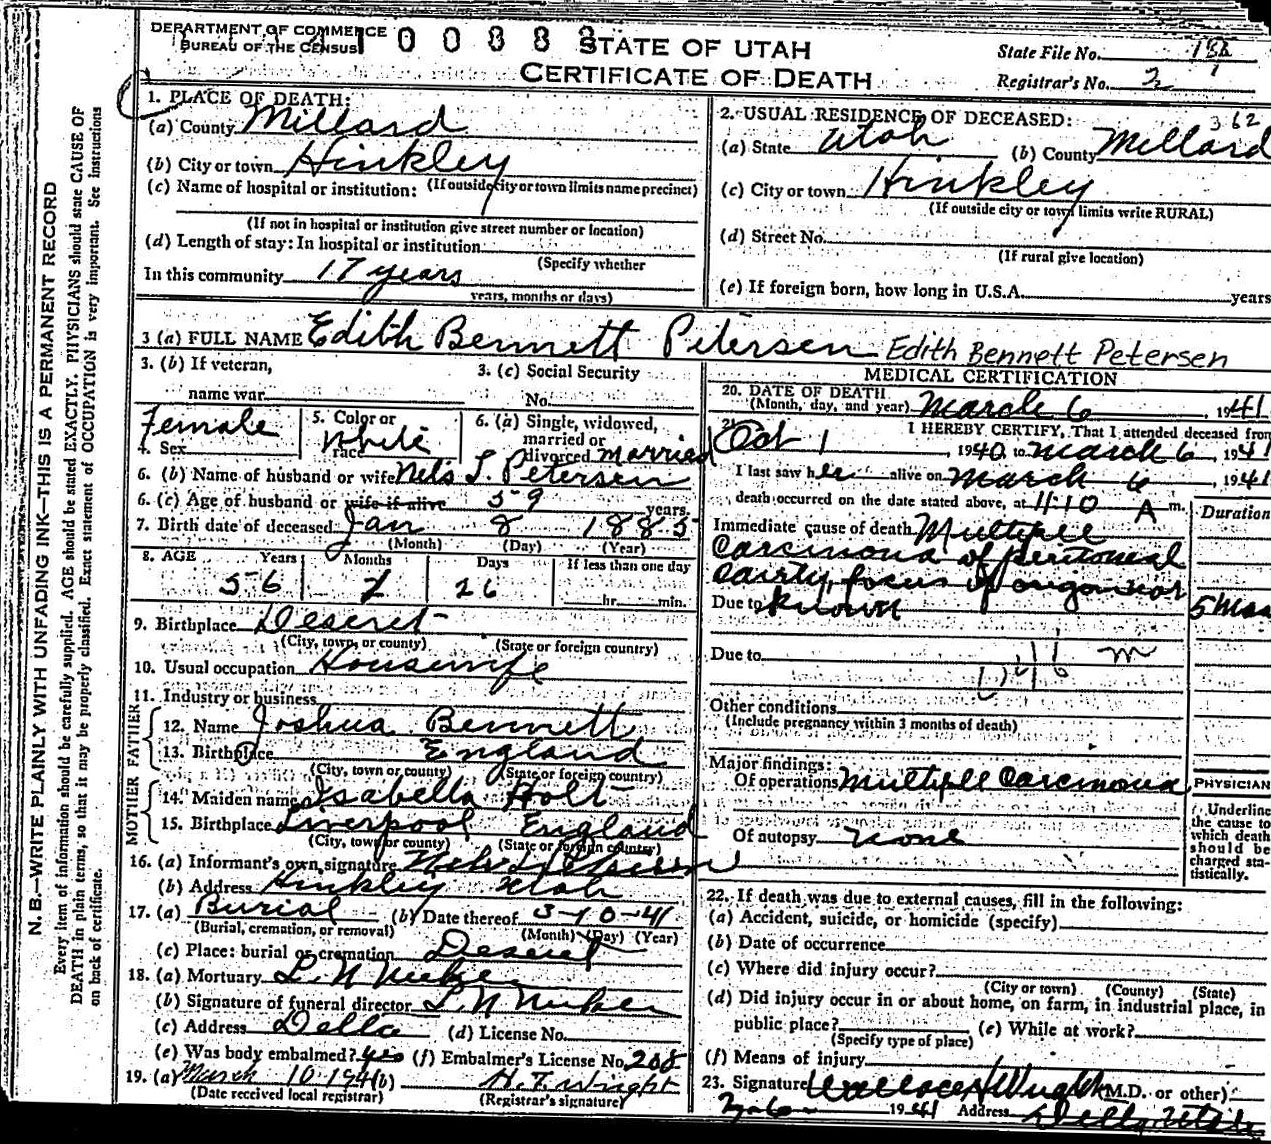 DEPARTMENT OF COMMERCE
BUREAU OF THE CENSUS
STATE OF UTAH
CERTIFICATE OF DEATH
State File No.
Registrar's No. 2
N. B.—WRITE PLAINLY WITH UNFADING INK—THIS IS A PERMANENT RECORD
Every item of information should be carefully supplied. AGE should be stated EXACTLY. PHYSICIANS should state CAUSE OF
DEATH in plain terms, so that it may be properly classified. Exact statement of OCCUPATION is very important. See instructions
on back of certificate.
1. PLACE OF DEATH:
(a) County Millard
(b) City or town Hinkley
(If outside city or town limits name precinct)
(c) Name of hospital or institution:
(If not in hospital or institution give street number or location)
(d) Length of stay: In hospital or institution
(Specify whether
In this community 17 years
years, months or days)
2. USUAL RESIDENCE OF DECEASED:
362
(a) State Utah (b) County Millard
(c) City or town Hinkley
(If outside city or town limits write RURAL)
(d) Street No.
(If rural give location)
(e) If foreign born, how long in U.S.A. years
3 (a) FULL NAME Edith Bennett Petersen Edith Bennett Petersen
3. (b) If veteran,
name war
3. (c) Social Security
No.
4. Sex Female
5. Color or
race White
6. (a) Single, widowed,
married or
divorced Married
6. (b) Name of husband or wife Nels L. Petersen
6. (c) Age of husband or wife if alive 59 years.
7. Birth date of deceased Jan 8 1885
(Month) (Day) (Year)
8. AGE Years Months Days If less than one day
56 26 hr. min.
9. Birthplace Deseret
(City, town, or county) (State or foreign country)
10. Usual occupation Housewife
11. Industry or business
FATHER
12. Name Joshua Bennett
13. Birthplace England
(City, town or county) (State or foreign country)
MOTHER
14. Maiden name Isabella Holt
15. Birthplace Liverpool England
(City, town or county) (State or foreign country)
16. (a) Informant's own signature Nels L Petersen
(b) Address Hinkley Utah
17. (a) Burial (b) Date thereof 3-10-41
(Burial, cremation, or removal) (Month) (Day) (Year)
(c) Place: burial or cremation Deseret
18. (a) Mortuary L. N
(b) Signature of funeral director L. N
(c) Address Delta (d) License No.
(e) Was body embalmed? yes (f) Embalmer's License No. 208
19. (a) March 10-1941 (b) H. F. Wright
(Date received local registrar) (Registrar's signature)
MEDICAL CERTIFICATION
20. DATE OF DEATH
(Month, day, and year) March 6, 1941
21. I HEREBY CERTIFY, That I attended deceased from
Oct 1, 1940 to March 6, 1941
I last saw her alive on March 6, 1941
death occurred on the date stated above, at 11:10 A m.
Duration
Immediate cause of death Multiple
Carcinoma of peritoneal
cavity, focus of origin not
Due to known 5 mos
Due to
Other conditions
(Include pregnancy within 3 months of death)
Major findings:
Of operations Multiple Carcinoma
Of autopsy none
PHYSICIAN
Underline
the cause to
which death
should be
charged sta-
tistically.
22. If death was due to external causes, fill in the following:
(a) Accident, suicide, or homicide (specify)
(b) Date of occurrence
(c) Where did injury occur?
(City or town) (County) (State)
(d) Did injury occur in or about home, on farm, in industrial place, in
public place? (e) While at work?
(Specify type of place)
(f) Means of injury
23. Signature Wallace Wright (M.D. or other)
1941 Address Delta, Utah